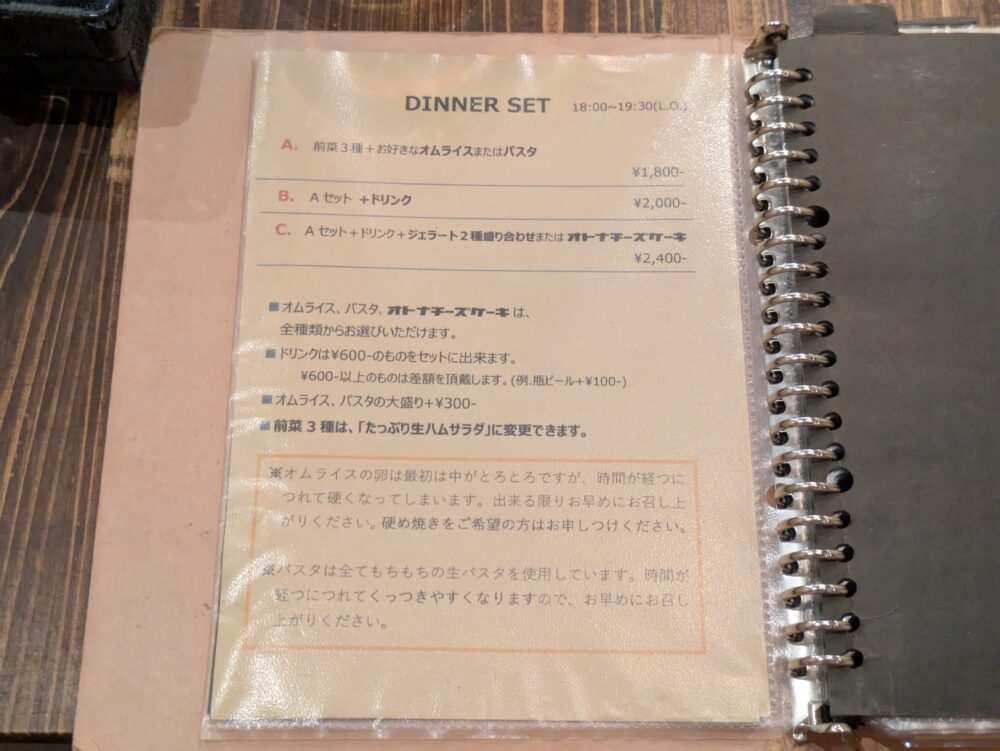 DINNER SET 18:00~19:30(L.O.)
A. 前菜3種+お好きなオムライスまたはパスタ
¥1,800-
B. Aセット +ドリンク ¥2,000-
C. Aセット+ドリンク+ジェラート2種盛り合わせまたは オトナチーズケーキ
¥2,400-
■オムライス、パスタ、オトナチーズケーキ は、
全種類からお選びいただけます。
■ドリンクは¥600-のものをセットに出来ます。
¥600-以上のものは差額を頂戴します。(例.瓶ビール+¥100-)
■オムライス、パスタの大盛り+¥300-
■前菜3種は、「たっぷり生ハムサラダ」に変更できます。
※オムライスの卵は最初は中がとろとろですが、時間が経つに
つれて硬くなってしまいます。出来る限りお早めにお召し上
がりください。硬め焼きをご希望の方はお申しつけください。
※パスタは全てもちもちの生パスタを使用しています。時間が
経つにつれてくっつきやすくなりますので、お早めにお召し
上がりください。